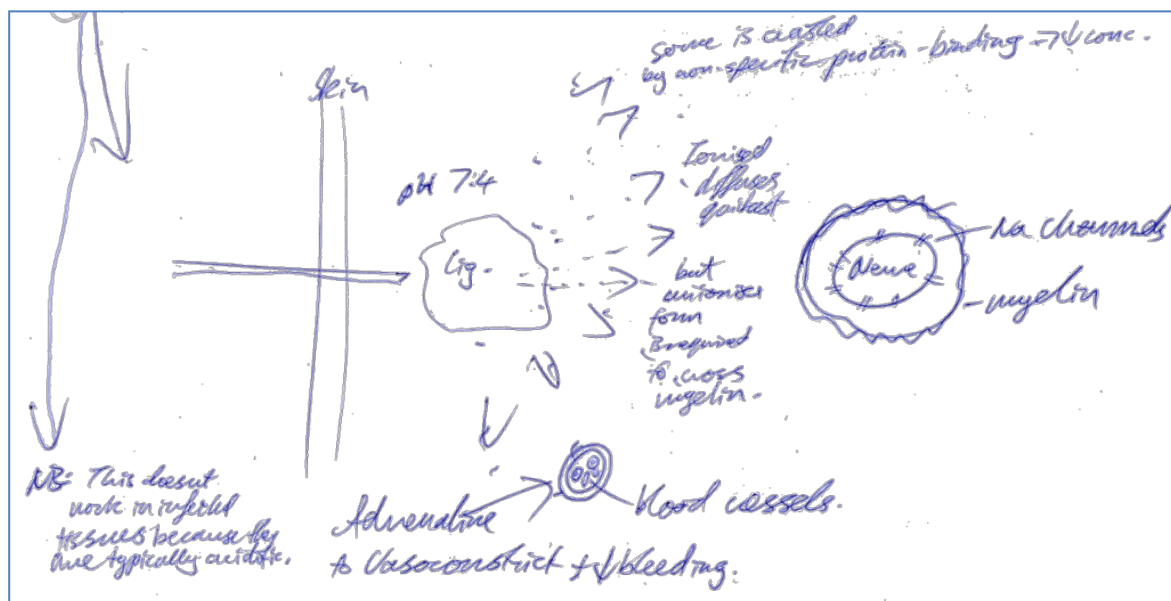 some is wasted
by non-specific protein-binding → ↓ conc.
Skin
pH 7.4
Ionised
diffuses
quickest
Lig.
but
unionised
form
is required
to cross
myelin.
Nerve
Na channels
myelin
NB: This doesnt
work in infected
tissues because they
are typically acidotic.
Adrenaline
to Vasoconstrict + ↓ bleeding.
blood vessels.